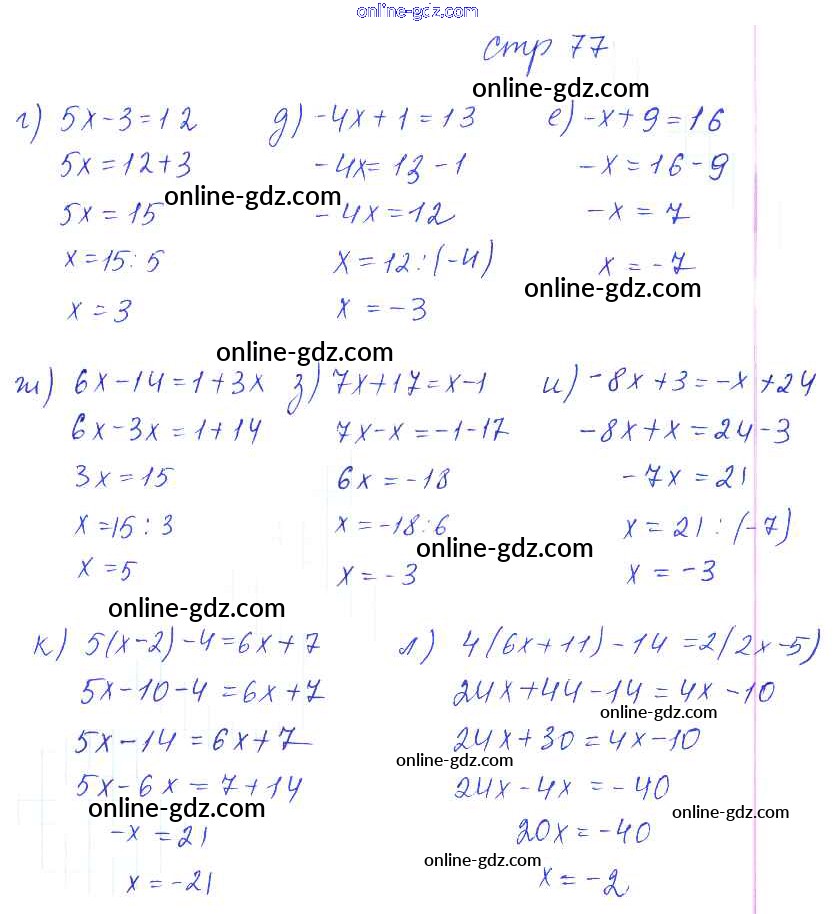 online-gdz.com
стр 77
online-gdz.com
г) 5x-3=12
5x=12+3
5x=15
x=15:5
x=3
д) -4x+1=13
-4x=13-1
-4x=12
x=12:(-4)
x=-3
е) -x+9=16
-x=16-9
-x=7
x=-7
online-gdz.com
online-gdz.com
online-gdz.com
ж) 6x-14=1+3x
6x-3x=1+14
3x=15
x=15:3
x=5
з) 7x+17=x-1
7x-x=-1-17
6x=-18
x=-18:6
x=-3
и) -8x+3=-x+24
-8x+x=24-3
-7x=21
x=21:(-7)
x=-3
online-gdz.com
online-gdz.com
к) 5(x-2)-4=6x+7
5x-10-4=6x+7
5x-14=6x+7
5x-6x=7+14
-x=21
x=-21
л) 4(6x+11)-14=2(2x-5)
24x+44-14=4x-10
24x+30=4x-10
24x-4x=-40
20x=-40
x=-2
online-gdz.com
online-gdz.com
online-gdz.com
online-gdz.com
online-gdz.com